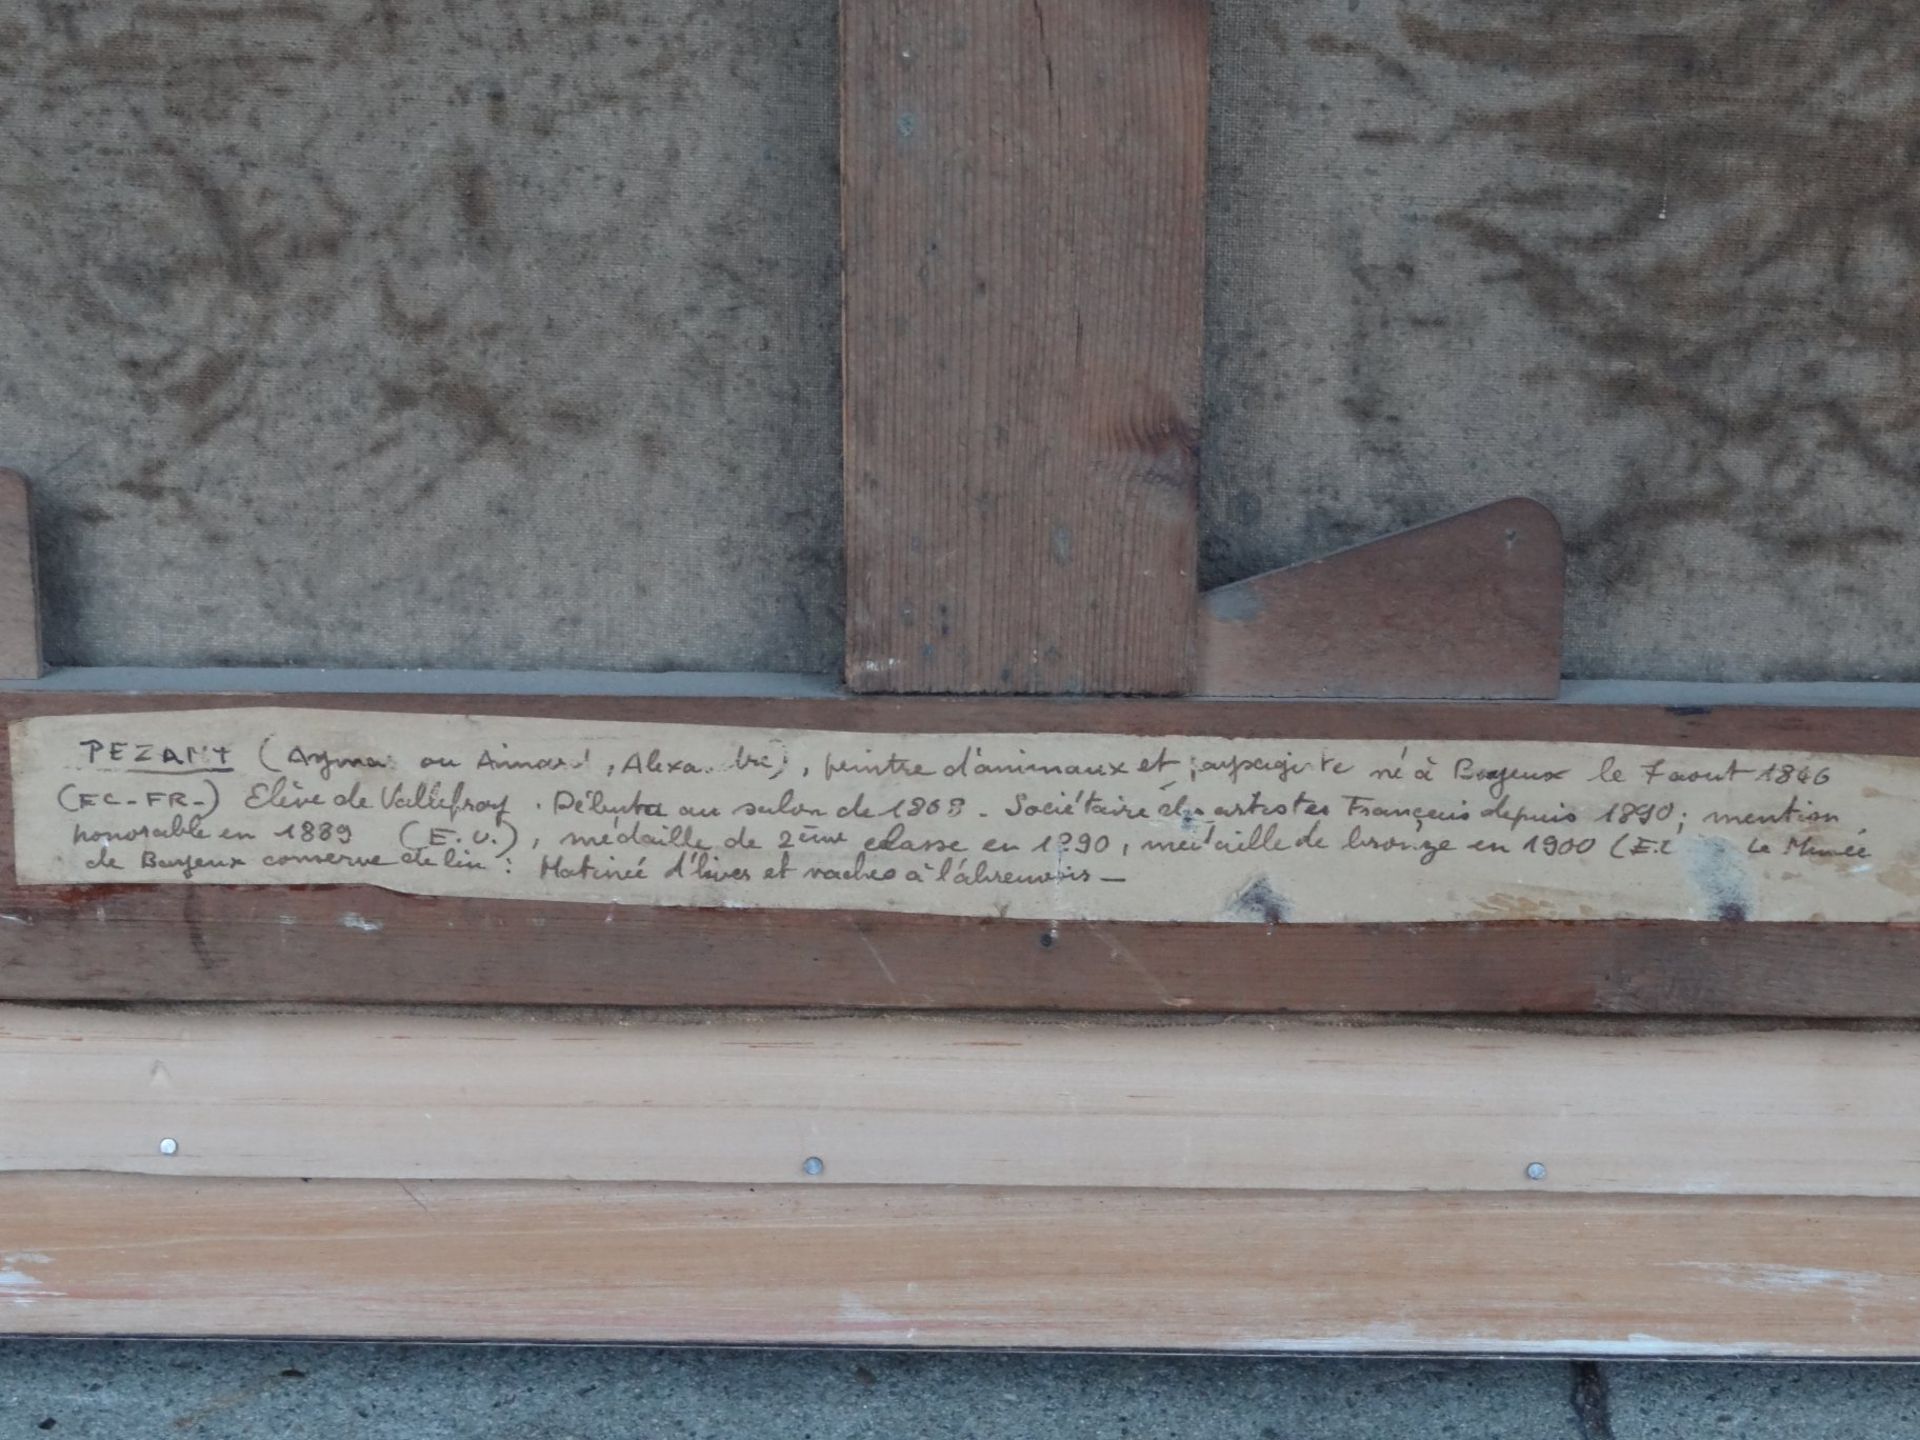 PEZANT (Aymar ou Aimard, Alexa bre), peintre d'animaux et paysagiste né à Bayeux le 7 aout 1846
(EC-FR-) Elève de Vallefroy. Débuta au salon de 1868 - Sociétaire des artistes Français depuis 1890; mention
honorable en 1889 (E.U.), médaille de 2ème classe en 1890, médaille de bronze en 1900 (E.U Le Musée
de Bayeux conserve de lui : Matinée d'hiver et vaches à l'abreuvoir -